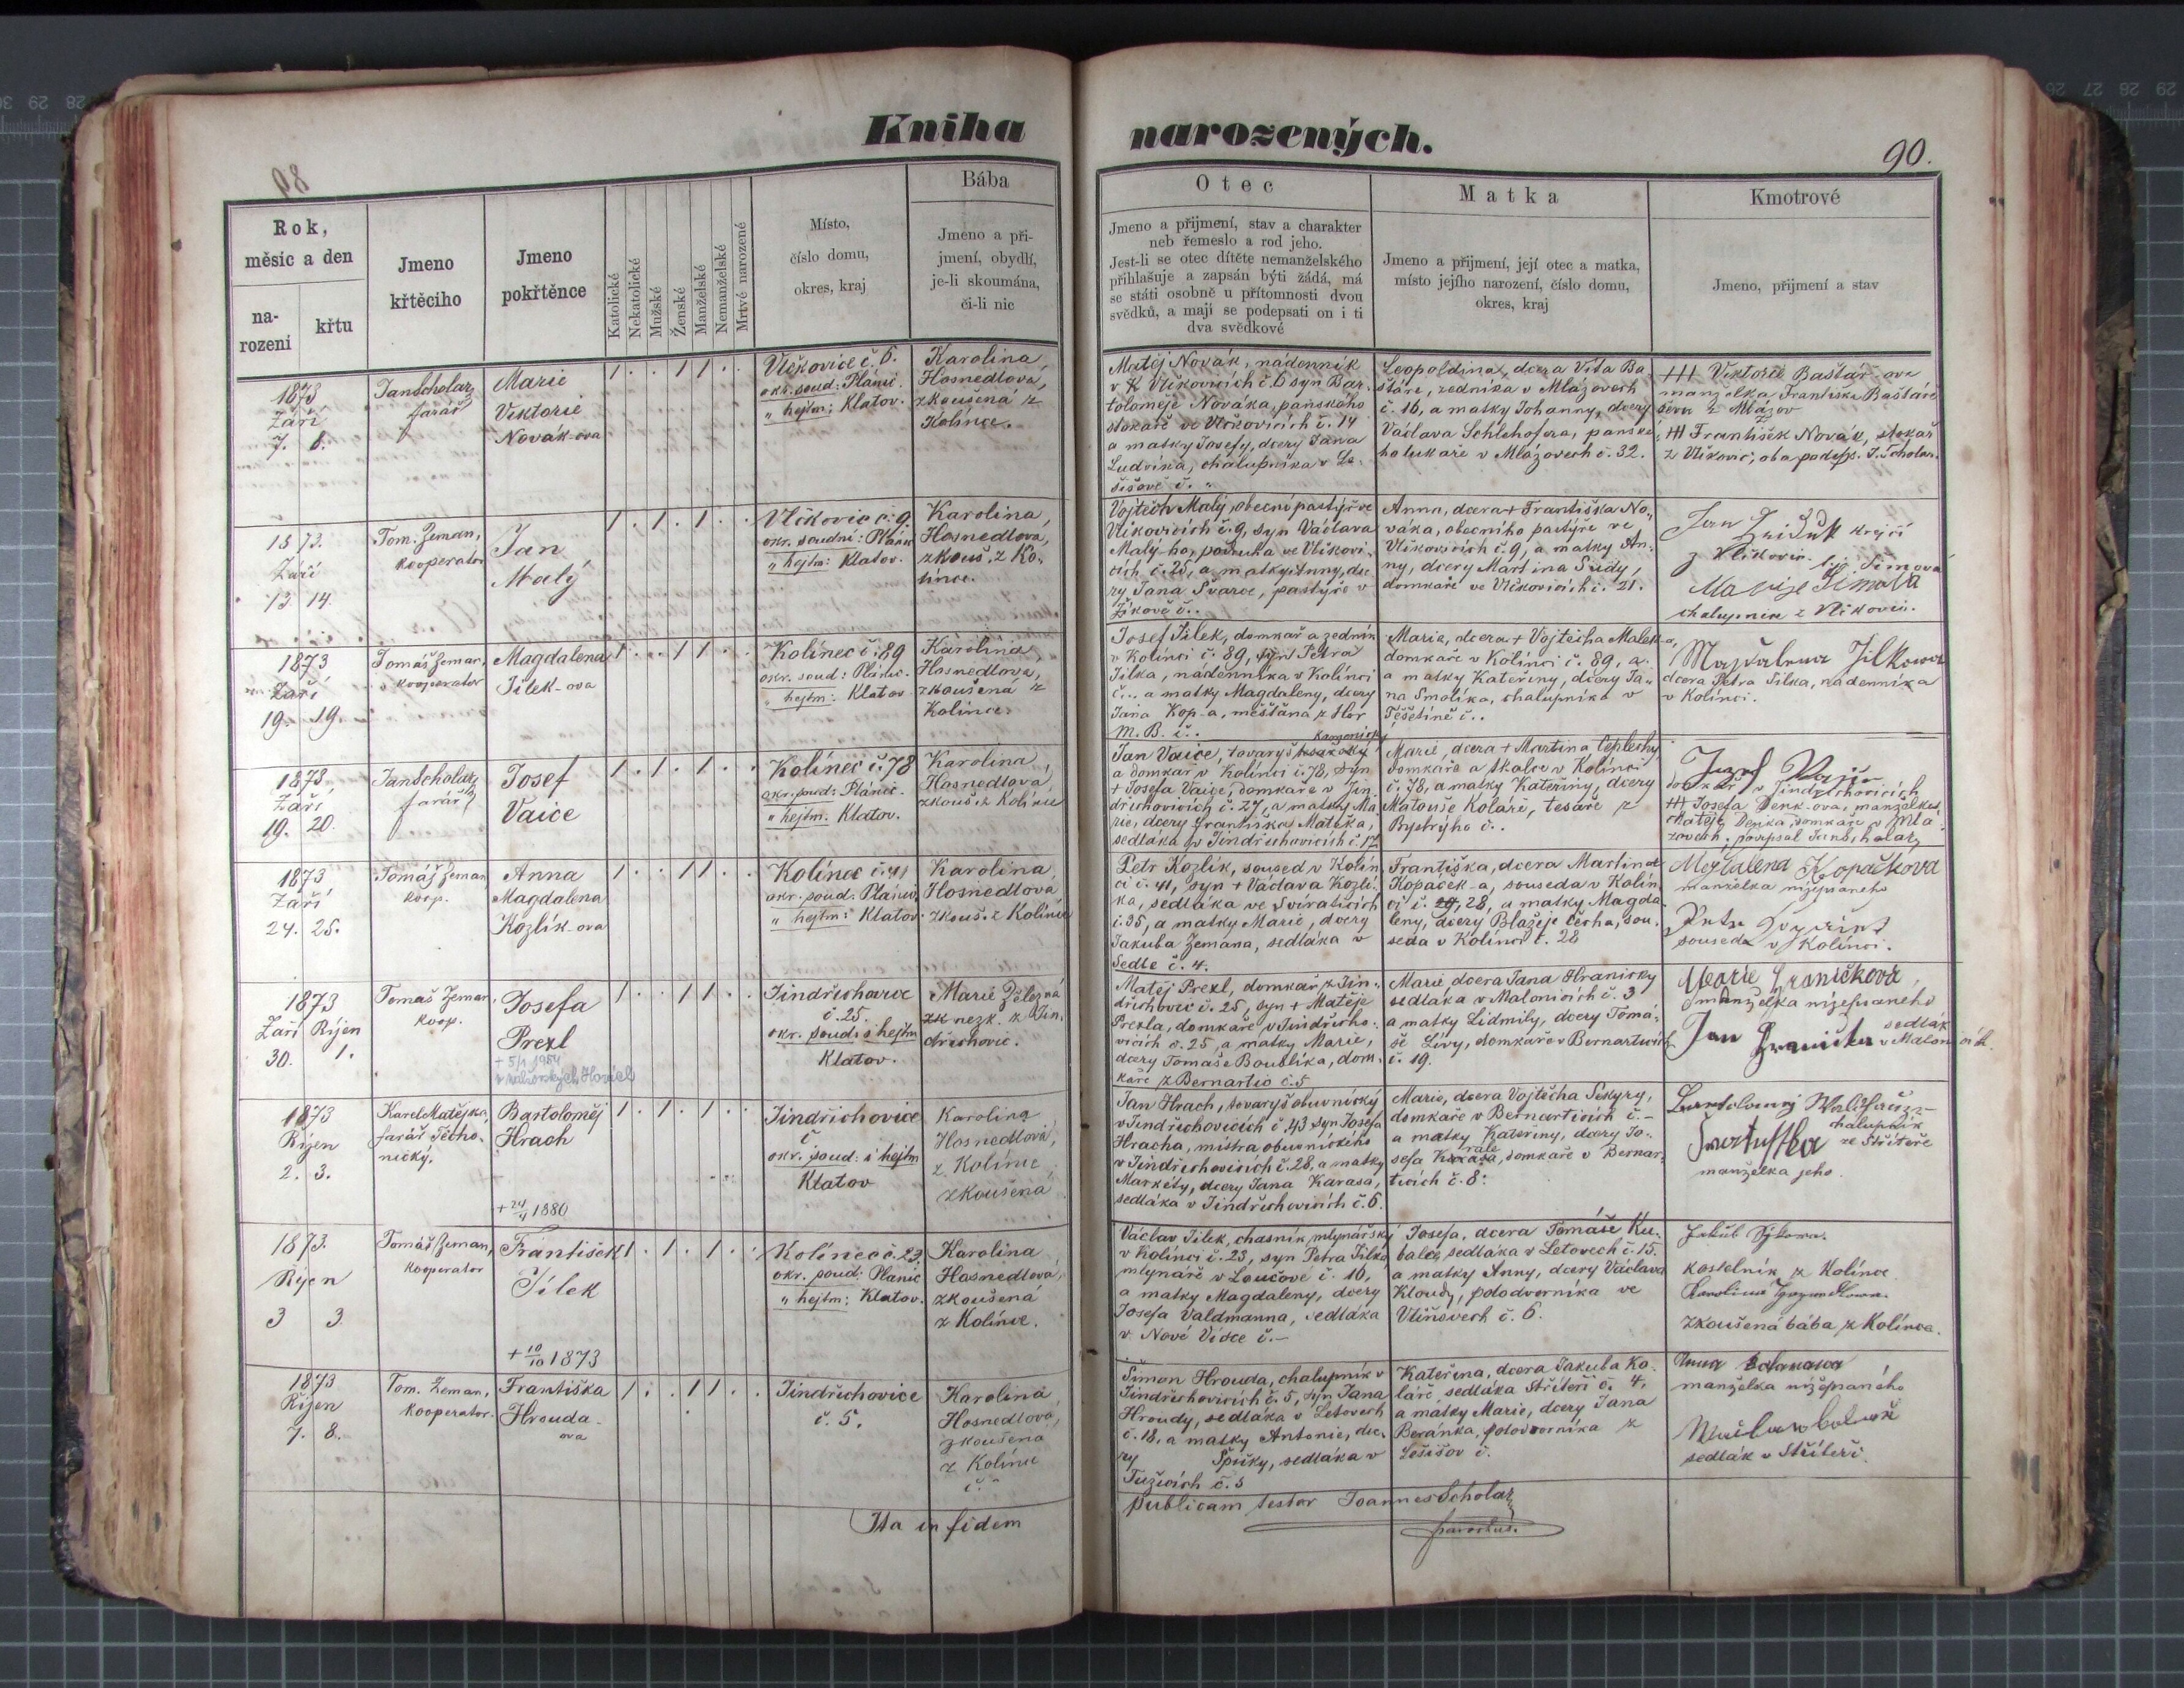 Kniha narozených.
90.
Rok,
měsic a den
na-
rozeni
křtu
Jmeno
křtěciho
Jmeno
pokřtěnce
Katolické
Nekatolické
Mužské
Ženské
Manželské
Nemanželské
Mrtvé narozené
Místo,
číslo domu,
okres, kraj
Bába
Jmeno a při-
jmení, obydlí,
je-li skoumána,
či-li nic
Otec
Jmeno a přijmení, stav a charakter
neb řemeslo a rod jeho.
Jest-li se otec dítěte nemanželského
přihlašuje a zapsán býti žádá, má
se státi osobně u přítomnosti dvou
svědků, a mají se podepsati on i ti
dva svědkové
Matka
Jmeno a přijmení, její otec a matka,
místo jejího narození, číslo domu,
okres, kraj
Kmotrové
Jmeno, přijmení a stav
1873
Září
7. 8.
Jan Scholaz
farář
Marie
Viktorie
Novák-ova
1 . . 1 1 . .
Vlčkovice č. 6.
okr. soud: Plánic.
" hejtm: Klatov.
Karolina
Hosnedlová,
zkoušená z
Kolince.
Matěj Novák, nádenník
v Vlčkovicích č. 6 syn Bar-
toloměje Nováka, panského
slokaře ve Vlčkovicích č. 14
a matky Josefy, dcery Jana
Ludvíka, chalupníka v Le-
šišově č. "
Leopoldina, dcera Víta Ba-
štáře, zedníka v Mlázovech
č. 16, a matky Johanny, dcery
Václava Schlehofera, panské-
ho lukaře v Mlázovech č. 32.
+++ Viktorie Baštář-ova
manželka Františka Baštáře
z Mlázov
+++ František Novák, slokař
z Vlčkovic, oba podeps. J. Scholar.
1873.
Září
13. 14.
Tom. Zeman,
kooperator
Jan
Malý
1 . 1 . 1 . .
Vlčkovic č. 9.
okr. soudní: Plánic
" hejtm: Klatov.
Karolina,
Hosnedlova,
zkouš. z Ko-
lince.
Vojtěch Malý, obecní pastýř ve
Vlčkovicích č. 9, syn Václava
Malý-ho, pacholka ve Vlčkovi-
cích č. 25, a matky Anny, dce-
ry Jana Švarce, pastýře v
Žíkově č..
Anna, dcera + Františka No-
váka, obecního pastýře ve
Vlčkovicích č. 9, a matky An-
ny, dcery Martina Sudy,
domkaře ve Vlčkovicích č. 21.
Jan
krejčí
z Vlčkovic
chalupnice z Vlčkovic.
1873
Září
19. 19.
Tomáš Zeman,
kooperator
Magdalena
Jilek-ova
1 . . 1 1 . .
Kolinec č. 89
okr. soud: Plánic.
" hejtm: Klatov.
Karolina,
Hosnedlova,
zkoušená z
Kolince.
Josef Jilek, domkař a zedník
v Kolinci č. 89, syn Petra
Jilka, nádenníka v Kolinci
č... a matky Magdaleny, dcery
Jana Kop-a, měšťána z Hor
M. B. č..
Marie, dcera + Vojtěcha Malek-a,
domkaře v Kolinci č. 89, a
a matky Kateřiny, dcery Ja-
na Smolíka, chalupníka v
Těšetíně č..
Magdalena Jilkowa
dcera Petra Jilka, nádenníka
v Kolinci.
1873,
Září
19. 20.
Jan Scholaz
farář
Josef
Vaice
1 . 1 . 1 . .
Kolinec č. 78
okr. soud: Plánic.
" hejtm. Klatov.
Karolina,
Hosnedlova,
zkouš. z Kolince
Jan Vaice, tovaryš kamenický
a domkař v Kolinci č. 78, syn
+ Josefa Vaice, domkaře v Jin-
dřichovicích č. 27, a matky Ma-
rie, dcery Františka Matěka,
sedláka v Jindřichovicích č. 17
Marie, dcera + Martina Ceplechy,
domkaře a tkalce v Kolinci
č. 78, a matky Kateřiny, dcery
Matouše Koláře, tesaře z
Bystrýho č..
Jozef
domkař v Jindřichovicích
+++ Josefa Denk-ova, manželka
Matěje Denka, domkaře v Mlá-
zovech, podepsal Jan Scholaz
1873
Září
24. 25.
Tomáš Zeman
koop.
Anna
Magdalena
Kozlík-ova
1 . . 1 1 . .
Kolinec č. 41
okr. soud: Plánic,
" hejtm: Klatov.
Karolina,
Hosnedlova
zkouš. z Kolince
Petr Kozlík, soused v Kolin-
ci č. 41, syn + Václava Kozlí-
ka, sedláka ve Sviraticích
č. 35, a matky Marie, dcery
Jakuba Zemana, sedláka v
Sedle č. 4.
Františka, dcera Martina
Kopáček-a, souseda v Kolin-
ci č. 29, 28, a matky Magda-
leny, dcery Blažeje Čecha, sou-
seda v Kolinci č. 28
Magdalena Kopačkova
manželka nížepsaného
souseda v Kolinci.
1873
Září Říjen
30. 1.
Tomáš Zeman,
koop.
Josefa
Prexl
+ 5/1 1954
1 . . 1 1 . .
Jindřichovice
č. 25.
okr. soud: i hejtm
Klatov.
Marie Železná
nezk. z Jin-
dřichovic.
Matěj Prexl, domkař z Jin-
dřichovic č. 25, syn + Matěje
Prexla, domkaře v Jindřicho-
vicích č. 25, a matky Marie,
dcery Tomáše Boublíka, dom-
káře z Bernartic č. 5
Marie dcera Jana Hranicky
sedláka v Malonicích č. 3
a matky Lidmily, dcery Tomá-
še Lívy, domkaře v Bernarticích
č. 19.
Marie Hraničkova,
manželka nížepsaného
Jan Hranička sedlák
v Malonicích
1873
Říjen
2. 3.
Karel Matějka,
farář Těcho-
nický.
Bartoloměj
Hrach
+ 24/4 1880
1 . 1 . 1 . .
Jindřichovice
č
okr. soud: i hejtm
Klatov
Karolina
Hosnedlová,
z Kolince
zkoušená
Jan Hrach, tovaryš obuvnický
v Jindřichovicích č. 43 syn Josefa
Hracha, mistra obuvnického
v Jindřichovicích č. 28, a matky
Markéty, dcery Jana Karasa,
sedláka v Jindřichovicích č. 6.
Marie, dcera Vojtěcha Sekyry,
domkaře v Bernarticích č.-
a matky Kateřiny, dcery Jo-
sefa, domkaře v Bernar-
ticích č. 8.
Bartolomej
chalupník
ve Stříteře
manželka jeho.
1873.
Říjen
3 3.
Tomáš Zeman,
kooperator
František
Jílek
+ 10/10 1873
1 . 1 . 1 . .
Kolinec č. 23.
okr. soud: Plánic
" hejtm: Klatov.
Karolina
Hosnedlová,
zkoušená
z Kolince.
Václav Jilek, chasník mlynářský
v Kolinci č. 23, syn Petra Jilka
mlynáře v Loučové č. 10,
a matky Magdaleny, dcery
Josefa Valdmanna, sedláka
v Nové Vísce č.-
Josefa, dcera Tomáše Ku-
balce, sedláka v Letovech č. 15.
a matky Anny, dcery Václava
Kloudy, polodvorníka ve
Vlčňovech č. 6.
Jakub Sýkora.
kostelník z Kolince
Karolina
zkoušená bába z Kolince.
1873
Říjen
7. 8.
Tom. Zeman,
kooperator.
Františka
Hrouda-
ova
1 . . 1 1 . .
Jindřichovice
č. 5.
Karolina
Hosnedlová,
zkoušená
z Kolince
č.
Šimon Hrouda, chalupník v
Jindřichovicích č. 5, syn Jana
Hroudy, sedláka v Letovech
č. 18, a matky Antonie, dce-
ry Špirky, sedláka v
Tužicích č. 5
Kateřina, dcera Jakuba Ko-
láře sedláka Stříteři č. 4,
a matky Marie, dcery Jana
Beránka, polodvorníka z
Lešišov č.
Anna
manželka nížepsaného
sedlák v Stříteři.
Ita in fidem publicam testor Joannes Scholaz
parochus.